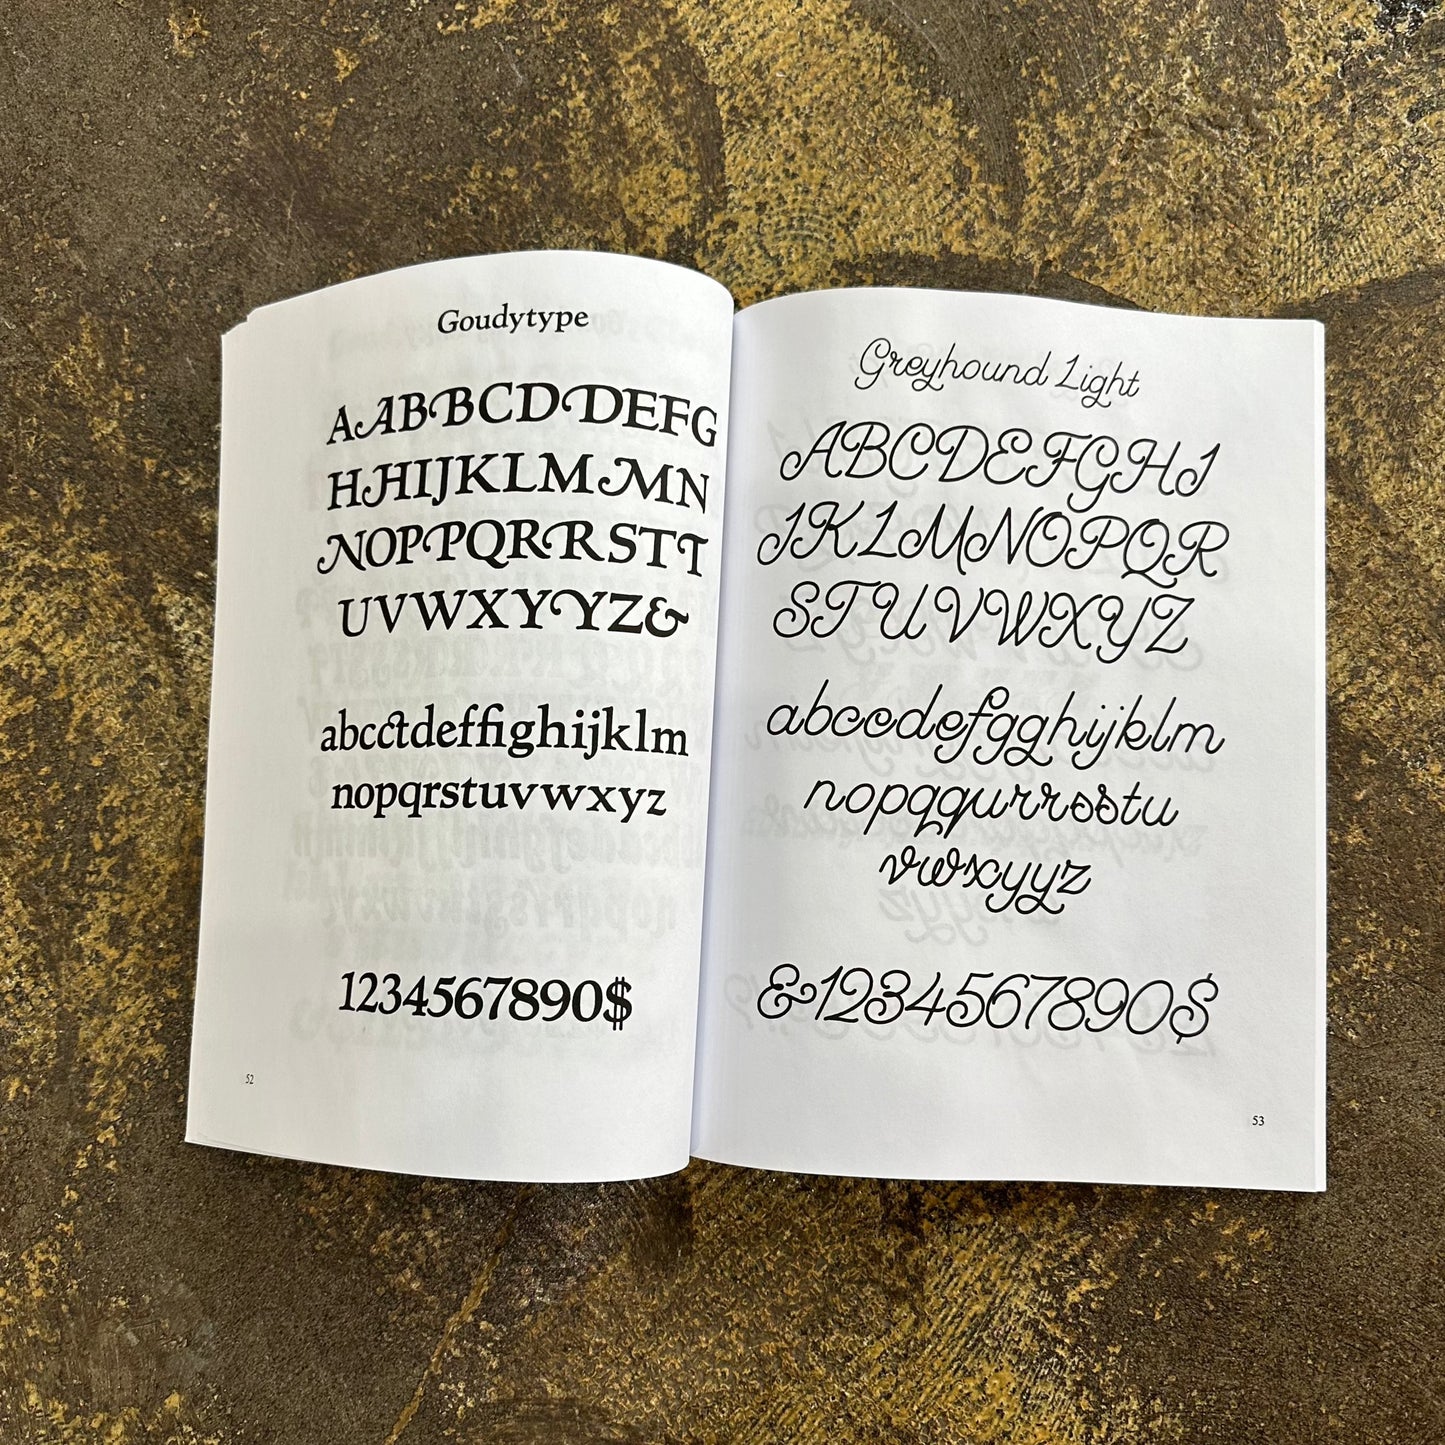 Goudytype
AAABBCDDEFG
HHIJKLMMN
NOPPQRRSTT
UVWXYYZ&
abcctdeffighijklm
nopqrstuvwxyz
1234567890$
52
Greyhound Light
ABCDEFGHI
JKLMNOPQR
STUVWXYZ
abccdefgghijklm
nopqqurrsstu
vwxyyz
&1234567890$
53